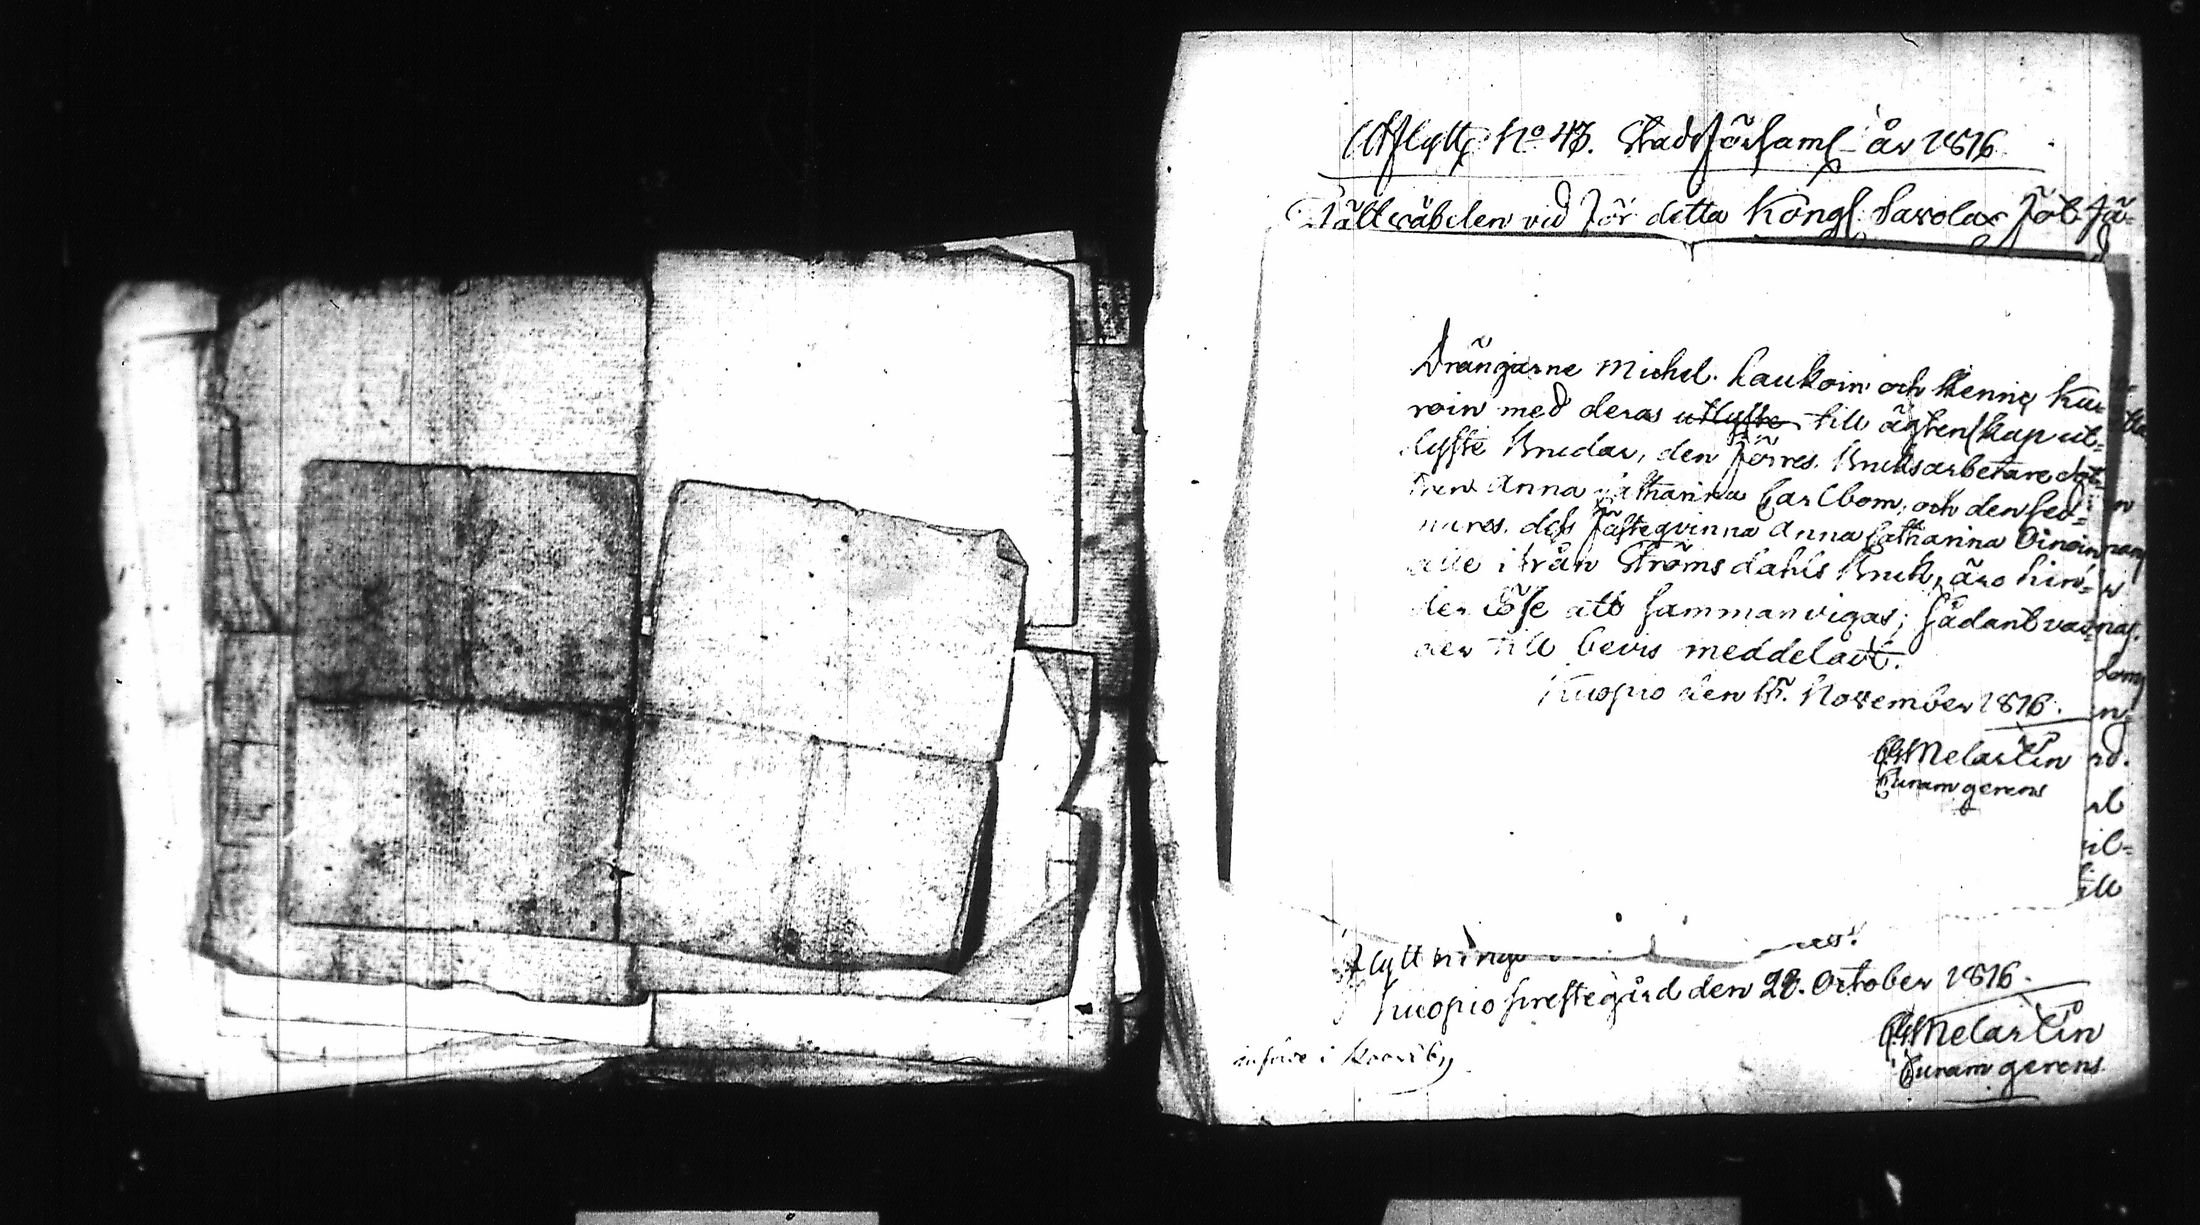 Utflytt, No 43. Stadsförsaml. år 1816
Fältväbelen vid för detta Kongl. Savolax Fot-Jä-
Drängarne Michel Haukoin och Henric Kar-
roin med deras utlyste till ägtenskap ut-
lyste Brudar, den förres Bruksarbetare dot-
tren Anna Catharina Carlbom, och den sed-
nares, dess fästeqvinna Anna Catharina Oinoin
alle ifrån Strömsdahls Bruk, äro hin-
der löse att sammanvigas; sådant var-
der till bevis meddelat.
Kuopio den 15. November 1816.
Melartin
Curam gerens
Flyttnings
Kuopio prestegård den 28. October 1816.
Melartin
Curam gerens
införe i